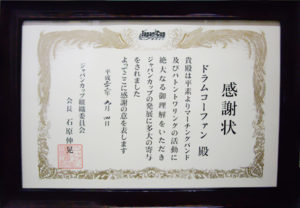 Japan Cup
感謝状
ドラムコーファン 殿
貴殿は平素よりマーチングバンド
及びバトントワリングの活動に
絶大なる御理解をいただき
ジャパンカップの発展に多大の寄与
をされました
よってここに感謝の意を表します
平成
ジャパンカップ組織委員会
会長 石原伸晃